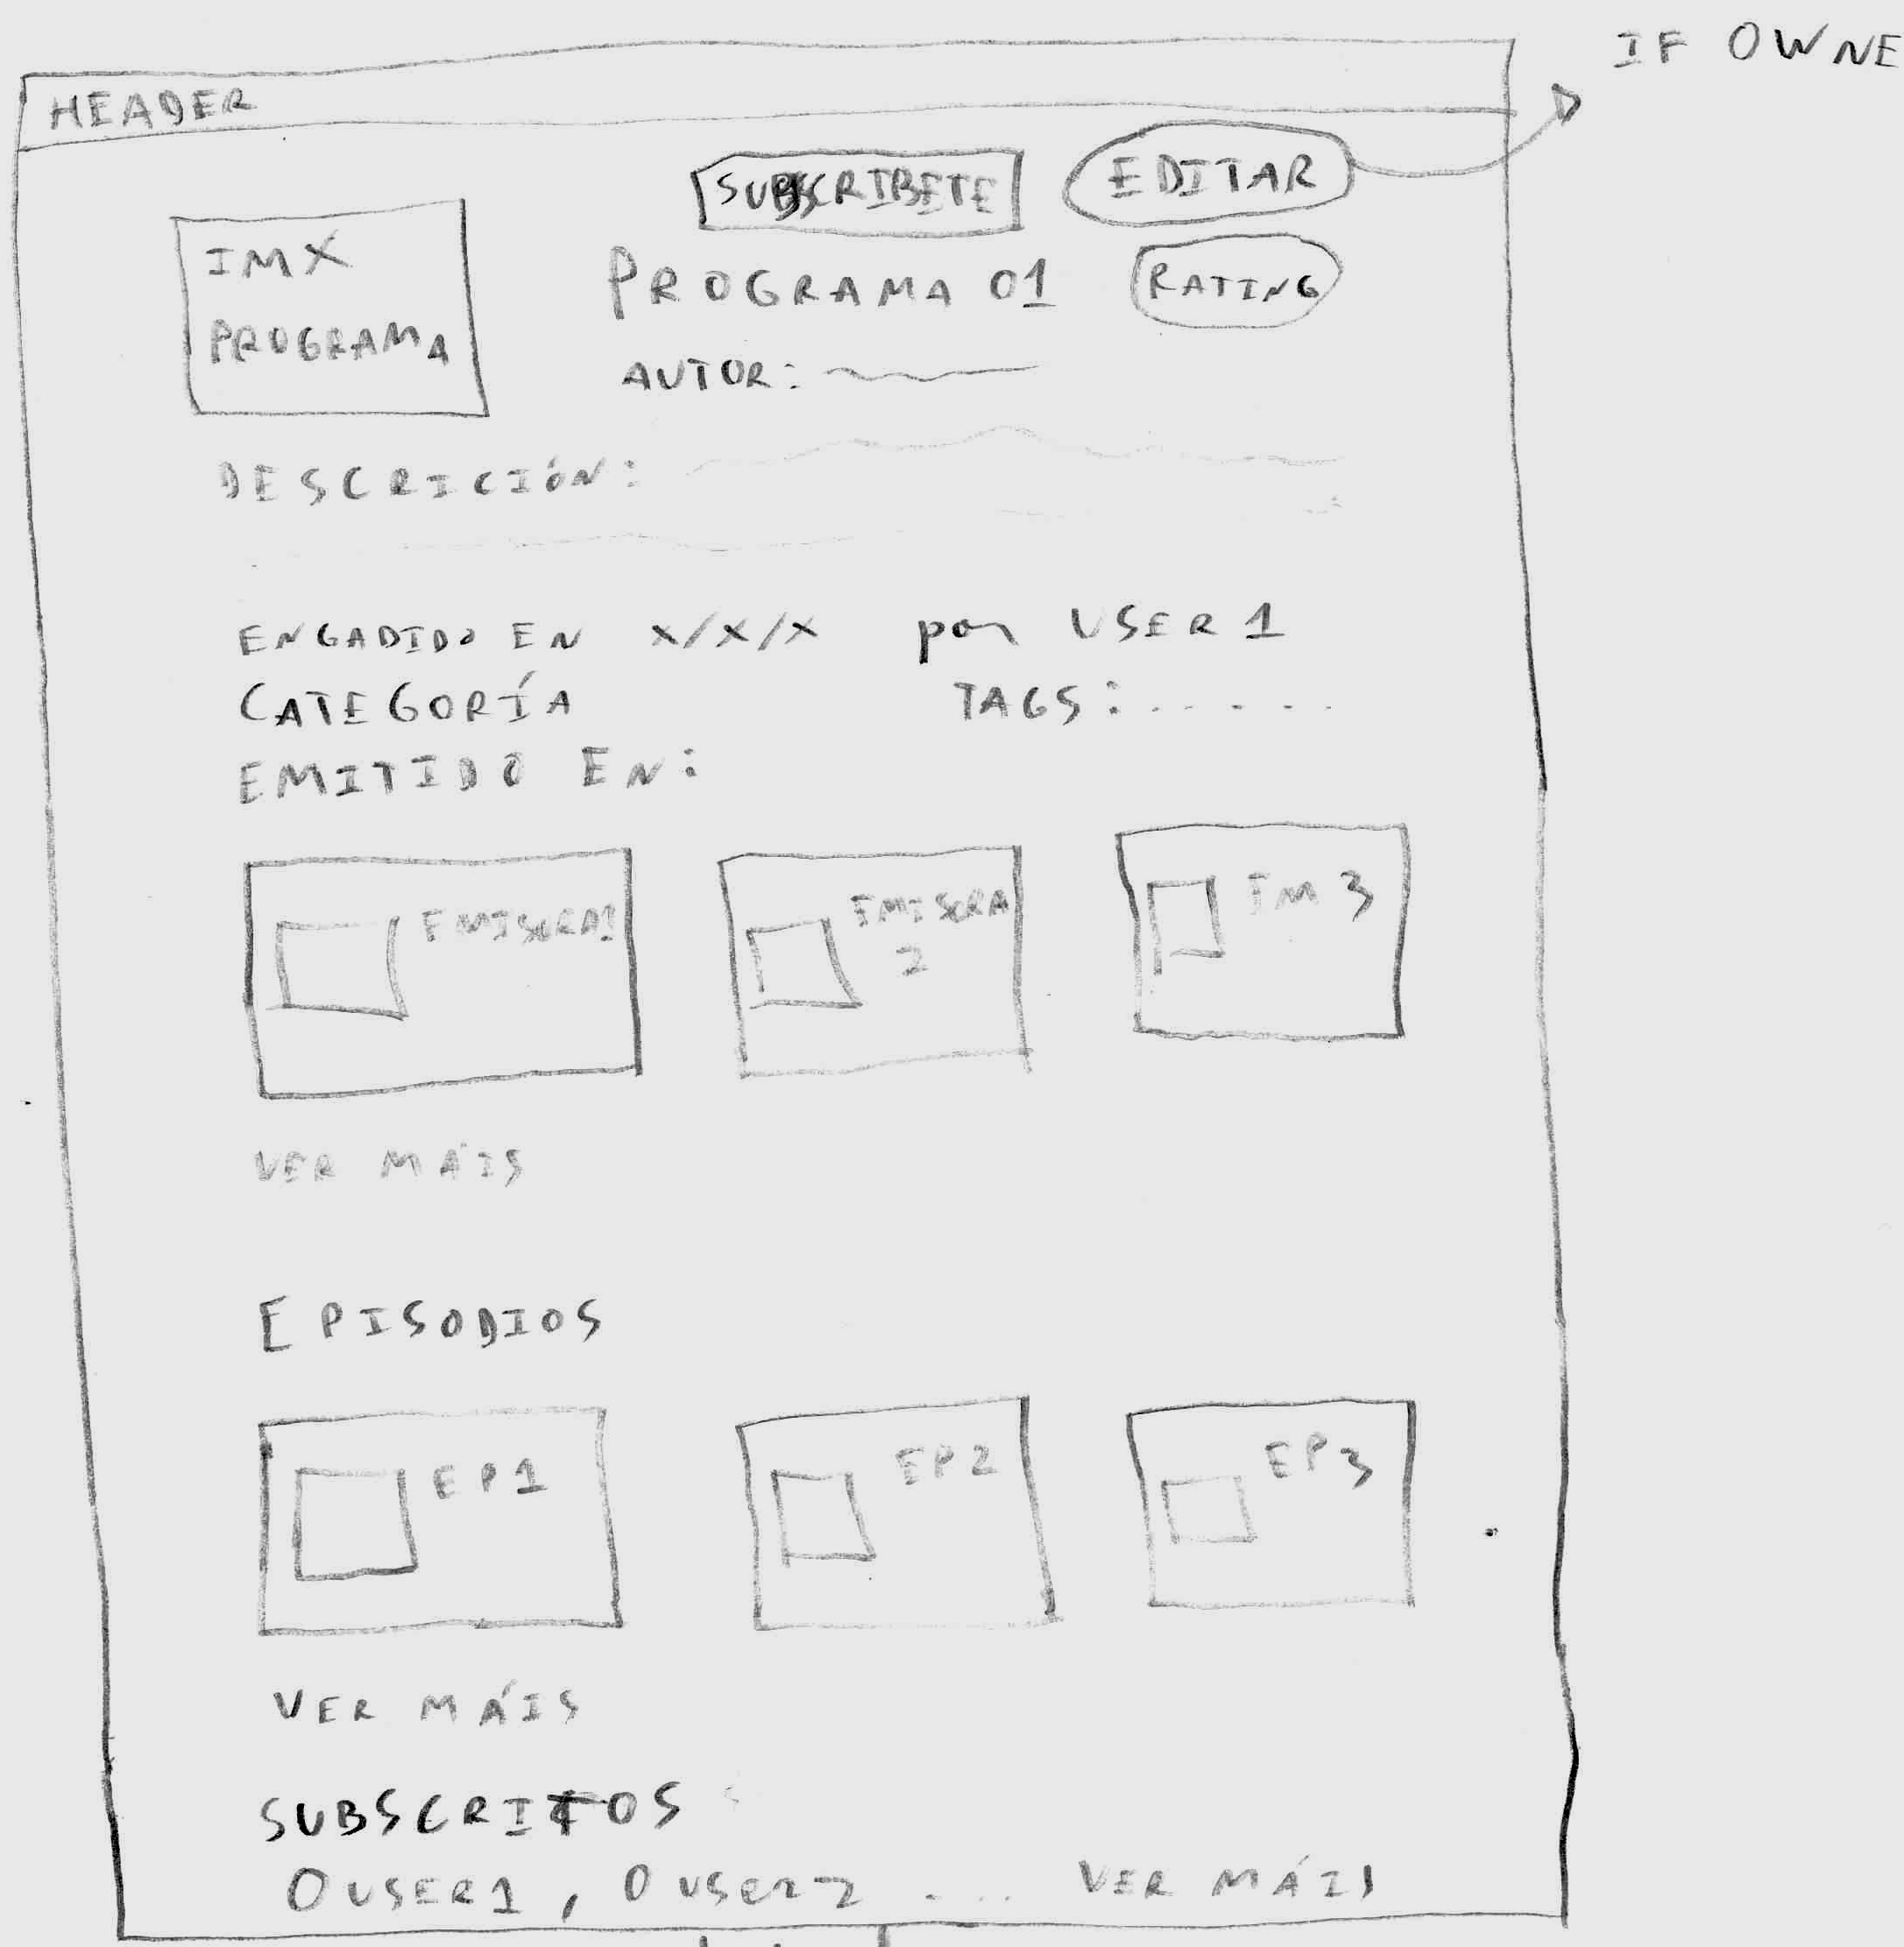 IF OWNE
HEADER
SUBSCRIBETE EDITAR
IMX
PROGRAMA
PROGRAMA 01 RATING
AUTOR:
DESCRICIÓN:
ENGADIDO EN X/X/X por USER 1
CATEGORÍA TAGS:.....
EMITIDO EN:
EMISORA1 EMISORA
2 EM 3
VER MÁIS
EPISODIOS
EP1 EP2 EP3
VER MÁIS
SUBSCRITOS :
O USER1, O USER2 .... VER MÁIS